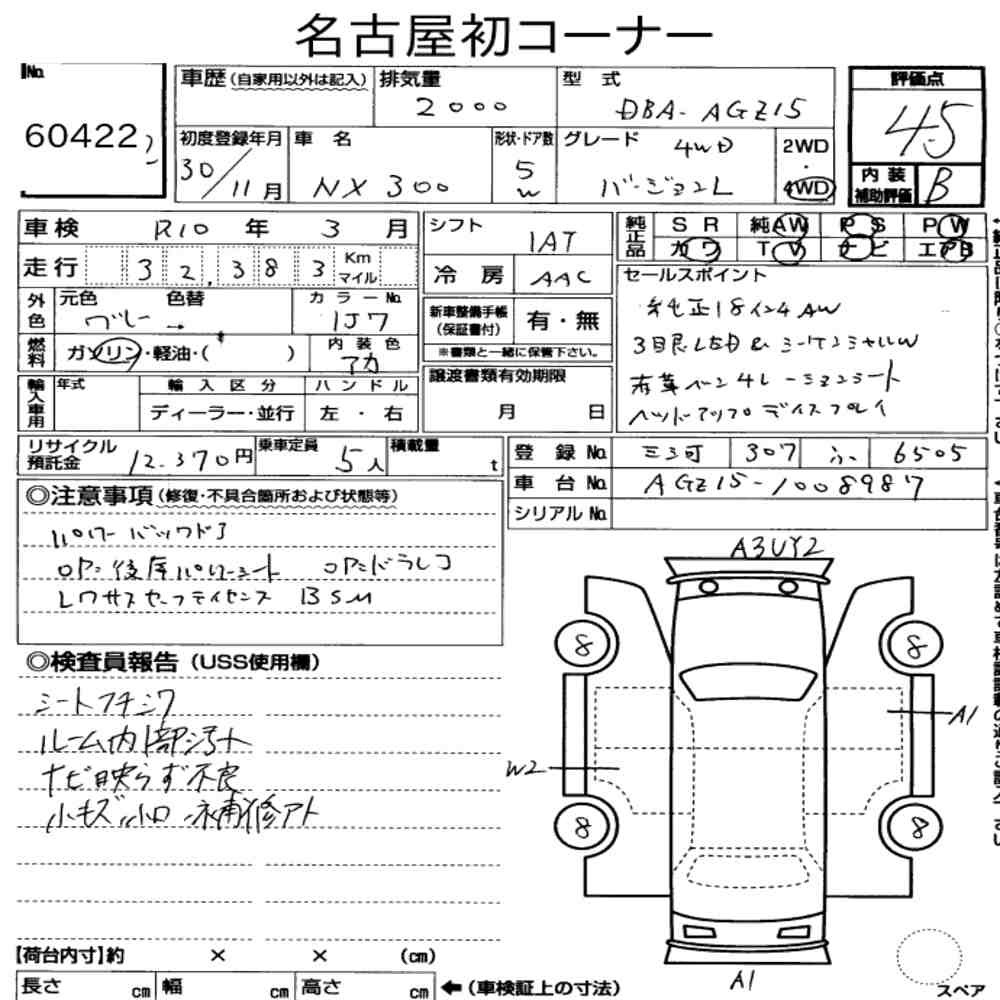 名古屋初コーナー
No. 60422
車歴 (自家用以外は記入)
排気量 2000
型式 DBA-AGZ15
評価点 4.5
初度登録年月 30/11月
車名 NX 300
形状・ドア数 5 W
グレード 4WD バージョンL
2WD・4WD
内装補助評価 B
車検 R10 年 3 月
走行 32,383 Km マイル
外色 元色 グレー → 色替
カラーNo. 1J7
燃料 ガソリン・軽油・( )
内装色 アカ
輸入車用 年式 輸入区分 ハンドル
ディーラー・並行 左・右
シフト 1AT
冷房 AAC
新車整備手帳(保証書付) 有・無
※書類と一緒に保管下さい。
譲渡書類有効期限
月 日
純正品 SR 純AW PS PW
カワ TV ナビ エアB
セールスポイント
純正18インチAW
3目LED & シーケンシャルW
赤革ベンチレーションシート
ヘッドアップディスプレイ
リサイクル預託金 12.370円
乗車定員 5人
積載量 t
登録No. 三三可 307 ふ 6505
車台No. AGZ15-1008987
シリアルNo.
◎注意事項(修復・不具合箇所および状態等)
パワーバックドア
OP=後席パワーシート OP=ドラレコ
レクサスセーフティセンス BSM
◎検査員報告 (USS使用欄)
シートフチシワ
ルーム内部汚れ
ナビ映らず不良
小キズ 小凹 補修アト
A3UY2
8
8
A1
W2
8
8
A1
スペア
【荷台内寸】約 × × (cm)
長さ cm 幅 cm 高さ cm ←(車検証上の寸法)